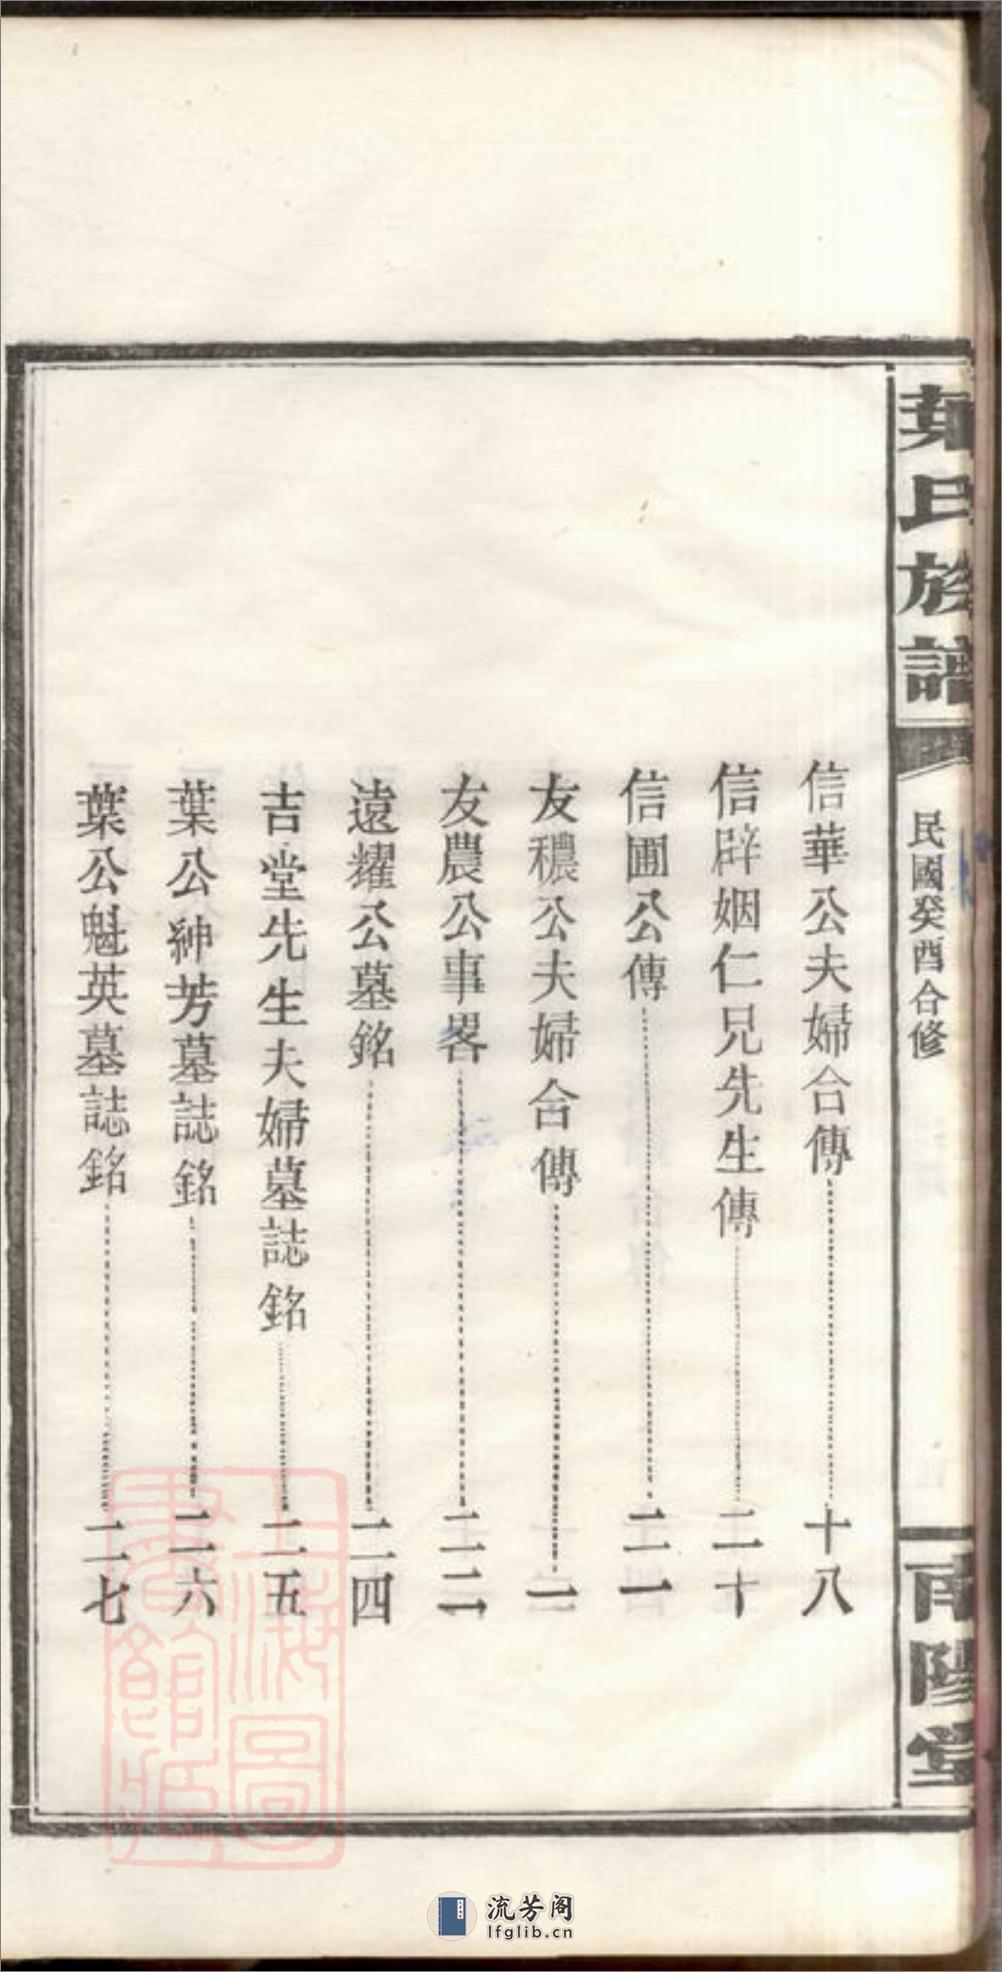 葉氏族譜
民國癸酉合修
南陽堂
信華公夫婦合傳
十八
信辟姻仁兄先生傳
二十
信圃公傳
二一
友穠公夫婦合傳
二
友農公事畧
二二
遠耀公墓銘
二四
吉堂先生夫婦墓誌銘
二五
葉公紳芳墓誌銘
二六
葉公魁英墓誌銘
二七
上海圖書館藏
流芳阁
lfglib.cn